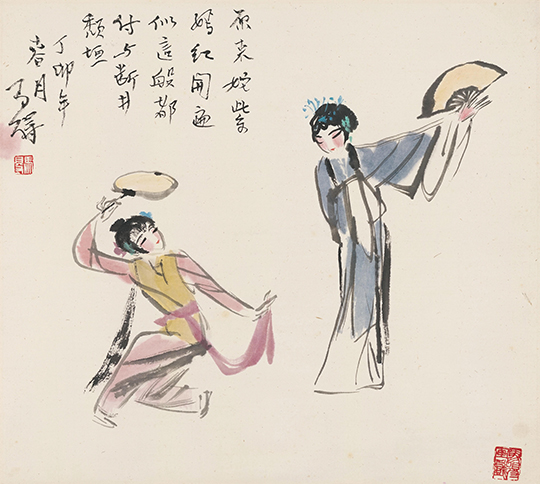 原来姹紫
嫣红開遍
似這般都
付与断井
颓垣
丁卯年
春月
马得